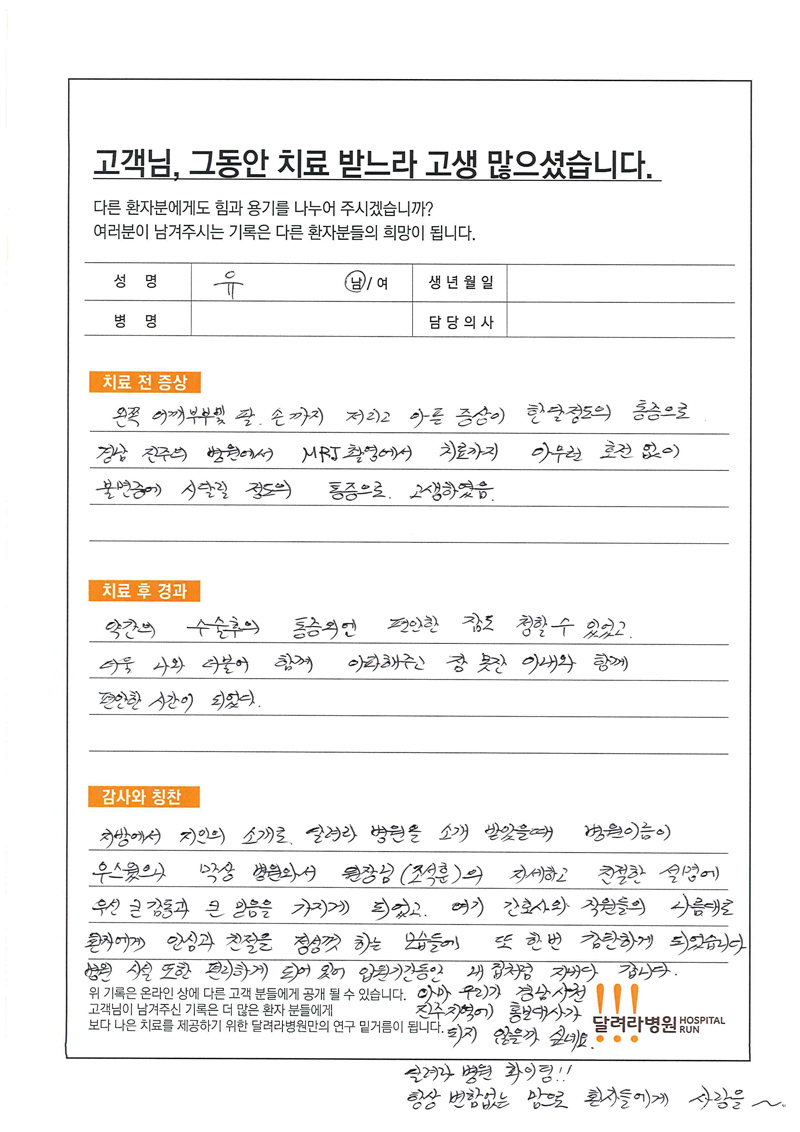 고객님, 그동안 치료 받느라 고생 많으셨습니다.
다른 환자분에게도 힘과 용기를 나누어 주시겠습니까?
여러분이 남겨주시는 기록은 다른 환자분들의 희망이 됩니다.
성 명 유 남/여 생년월일
병 명 담당의사
치료 전 증상
왼쪽 어깨부부빛 팔, 손까지 저리고 아픈 증상이 한달정도의 통증으로
경남 진주의 병원에서 MRI촬영에서 치료까지 아무런 호전 없이
불면증에 시달릴 정도의 통증으로 고생하였음.
치료 후 경과
약간의 수술후의 통증외엔 편안한 잠도 청할 수 있었고.
더욱 나와 더불어 함께 아파해주고 잠 못잔 아내와 함께
편안한 시간이 되었다.
감사와 칭찬
지방에서 지인의 소개로 달려라 병원을 소개 받았을때 병원이름이
우스웠으나 막상 병원와서 원장님(조석훈)의 자세하고 친절한 설명에
우선 큰 감동과 큰 믿음을 가지게 되었고. 여기 간호사와 직원들의 나름대로
환자에게 안심과 친절을 정성껏 하는 모습들에 또 한번 감탄하게 되었습니다
병원 시설 또한 편리하게 되어 있어 입원기간동안 내 집처럼 지내다 갑니다.
위 기록은 온라인 상에 다른 고객 분들에게 공개 될 수 있습니다.
고객님이 남겨주신 기록은 더 많은 환자 분들에게
보다 나은 치료를 제공하기 위한 달려라병원만의 연구 밑거름이 됩니다.
아마 우리가 경남 사천
진주지역에 홍보대사가
되지 않을까 싶네요.
달려라병원 HOSPITAL RUN
달려라 병원 화이팅!!
항상 변함없는 맘으로 환자들에게 사랑을 ~..